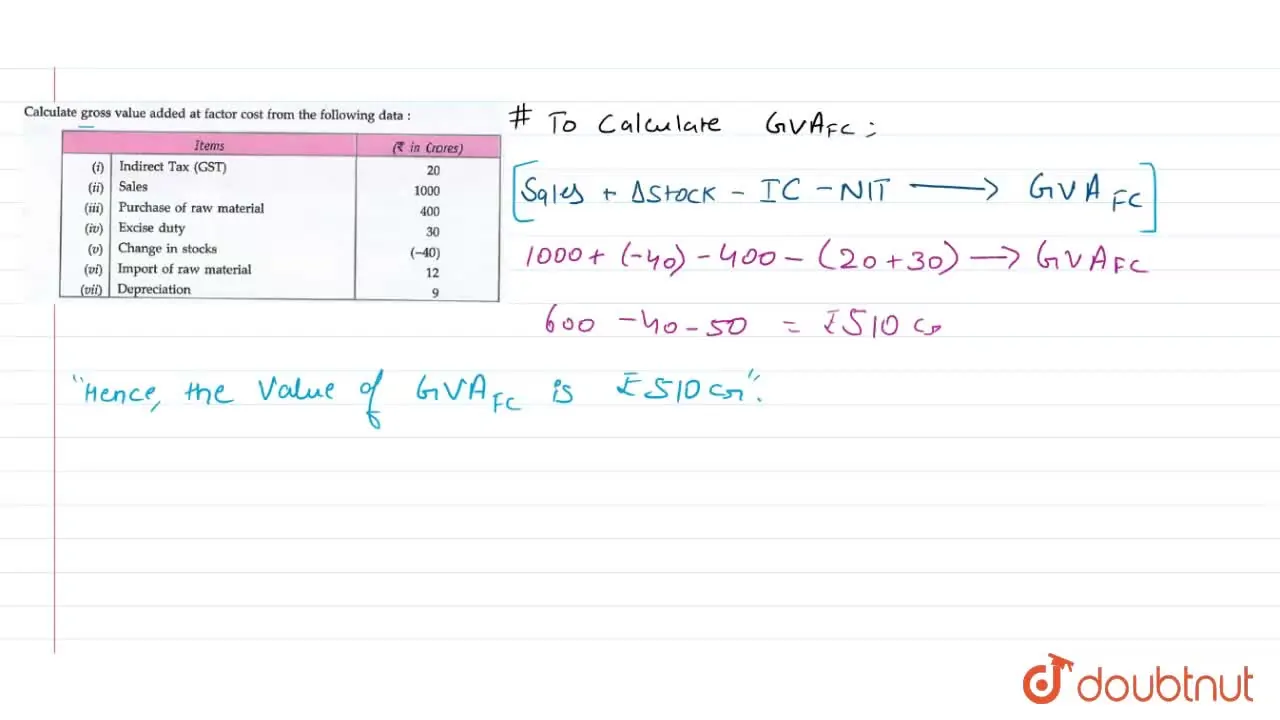 Calculate gross value added at factor cost from the following data :
Items (₹ in Crores)
(i) Indirect Tax (GST) 20
(ii) Sales 1000
(iii) Purchase of raw material 400
(iv) Excise duty 30
(v) Change in stocks (–40)
(vi) Import of raw material 12
(vii) Depreciation 9
# To Calculate GVAFC :
[Sales + ΔStock - IC - NIT → GVA FC]
1000 + (-40) - 400 - (20+30) → GVAFC
600 - 40 - 50 = ₹510 Cr
"Hence, the Value of GVAFC is ₹510 Cr".
doubtnut